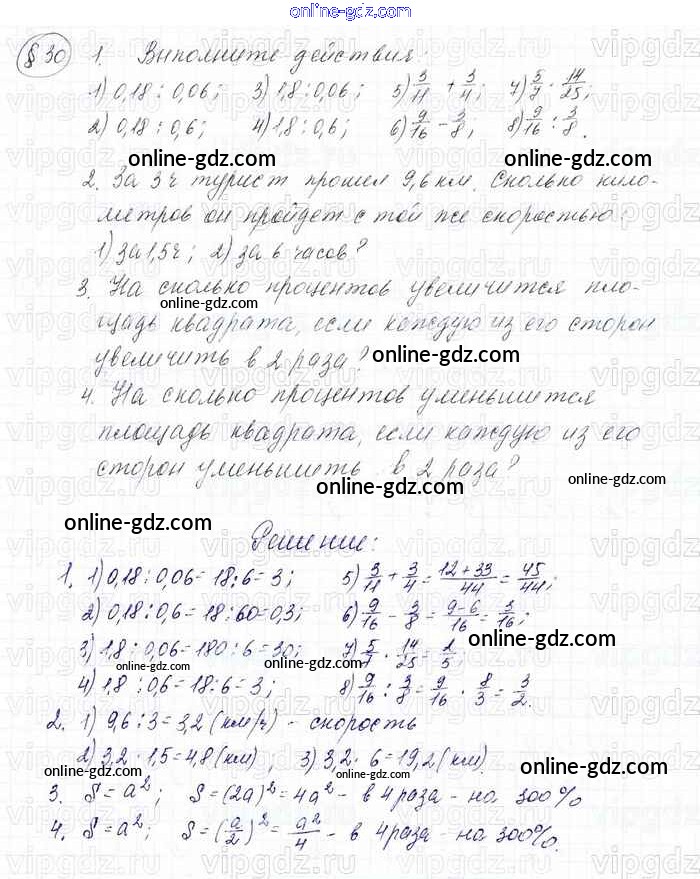 online-gdz.com
§ 30 1. Выполните действия:
1) 0,18 : 0,06; 3) 1,8 : 0,06; 5) 3/11 + 3/4; 7) 5/7 · 14/25;
2) 0,18 : 0,6; 4) 1,8 : 0,6; 6) 9/16 - 3/8; 8) 9/16 : 3/8.
online-gdz.com online-gdz.com
2. За 3ч турист прошел 9,6 км. Сколько кило-
метров он пройдет с той же скоростью:
1) за 1,5ч; 2) за 6 часов?
online-gdz.com
3. На сколько процентов увеличится пло-
online-gdz.com
щадь квадрата, если каждую из его сторон
увеличить в 2 раза?
online-gdz.com
4. На сколько процентов уменьшится
площадь квадрата, если каждую из его
сторон уменьшить в 2 раза?
online-gdz.com
online-gdz.com
Решение:
1. 1) 0,18 : 0,06 = 18 : 6 = 3; 5) 3/11 + 3/4 = 12+33/44 = 45/44;
2) 0,18 : 0,6 = 18 : 60 = 0,3; 6) 9/16 - 3/8 = 9-6/16 = 3/16;
3) 1,8 : 0,06 = 180 : 6 = 30; 7) 5/7 · 14/25 = 2/5;
online-gdz.com online-gdz.com online-gdz.com
4) 1,8 : 0,6 = 18 : 6 = 3; 8) 9/16 : 3/8 = 9/16 · 8/3 = 3/2.
2. 1) 9,6 : 3 = 3,2 (км/ч) - скорость
2) 3,2 · 1,5 = 4,8 (км), 3) 3,2 · 6 = 19,2 (км).
online-gdz.com online-gdz.com
3. S = a²; S = (2a)² = 4a² - в 4 раза - на 300%
4. S = a²; S = (a/2)² = a²/4 - в 4 раза - на 300%.
online-gdz.com